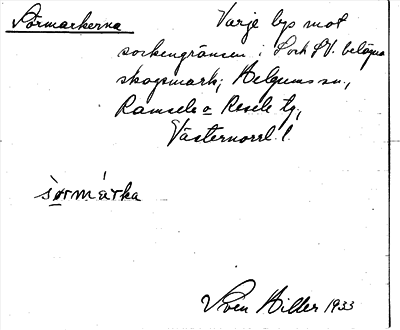 Sörmarkerna Varje bys mot
sockengränsen i S och SV. belägna
skogsmark; Helgums sn,
Ramsele o Resele tg,
Västernorrl. l.
sørmárka
Sven Hiller 1933